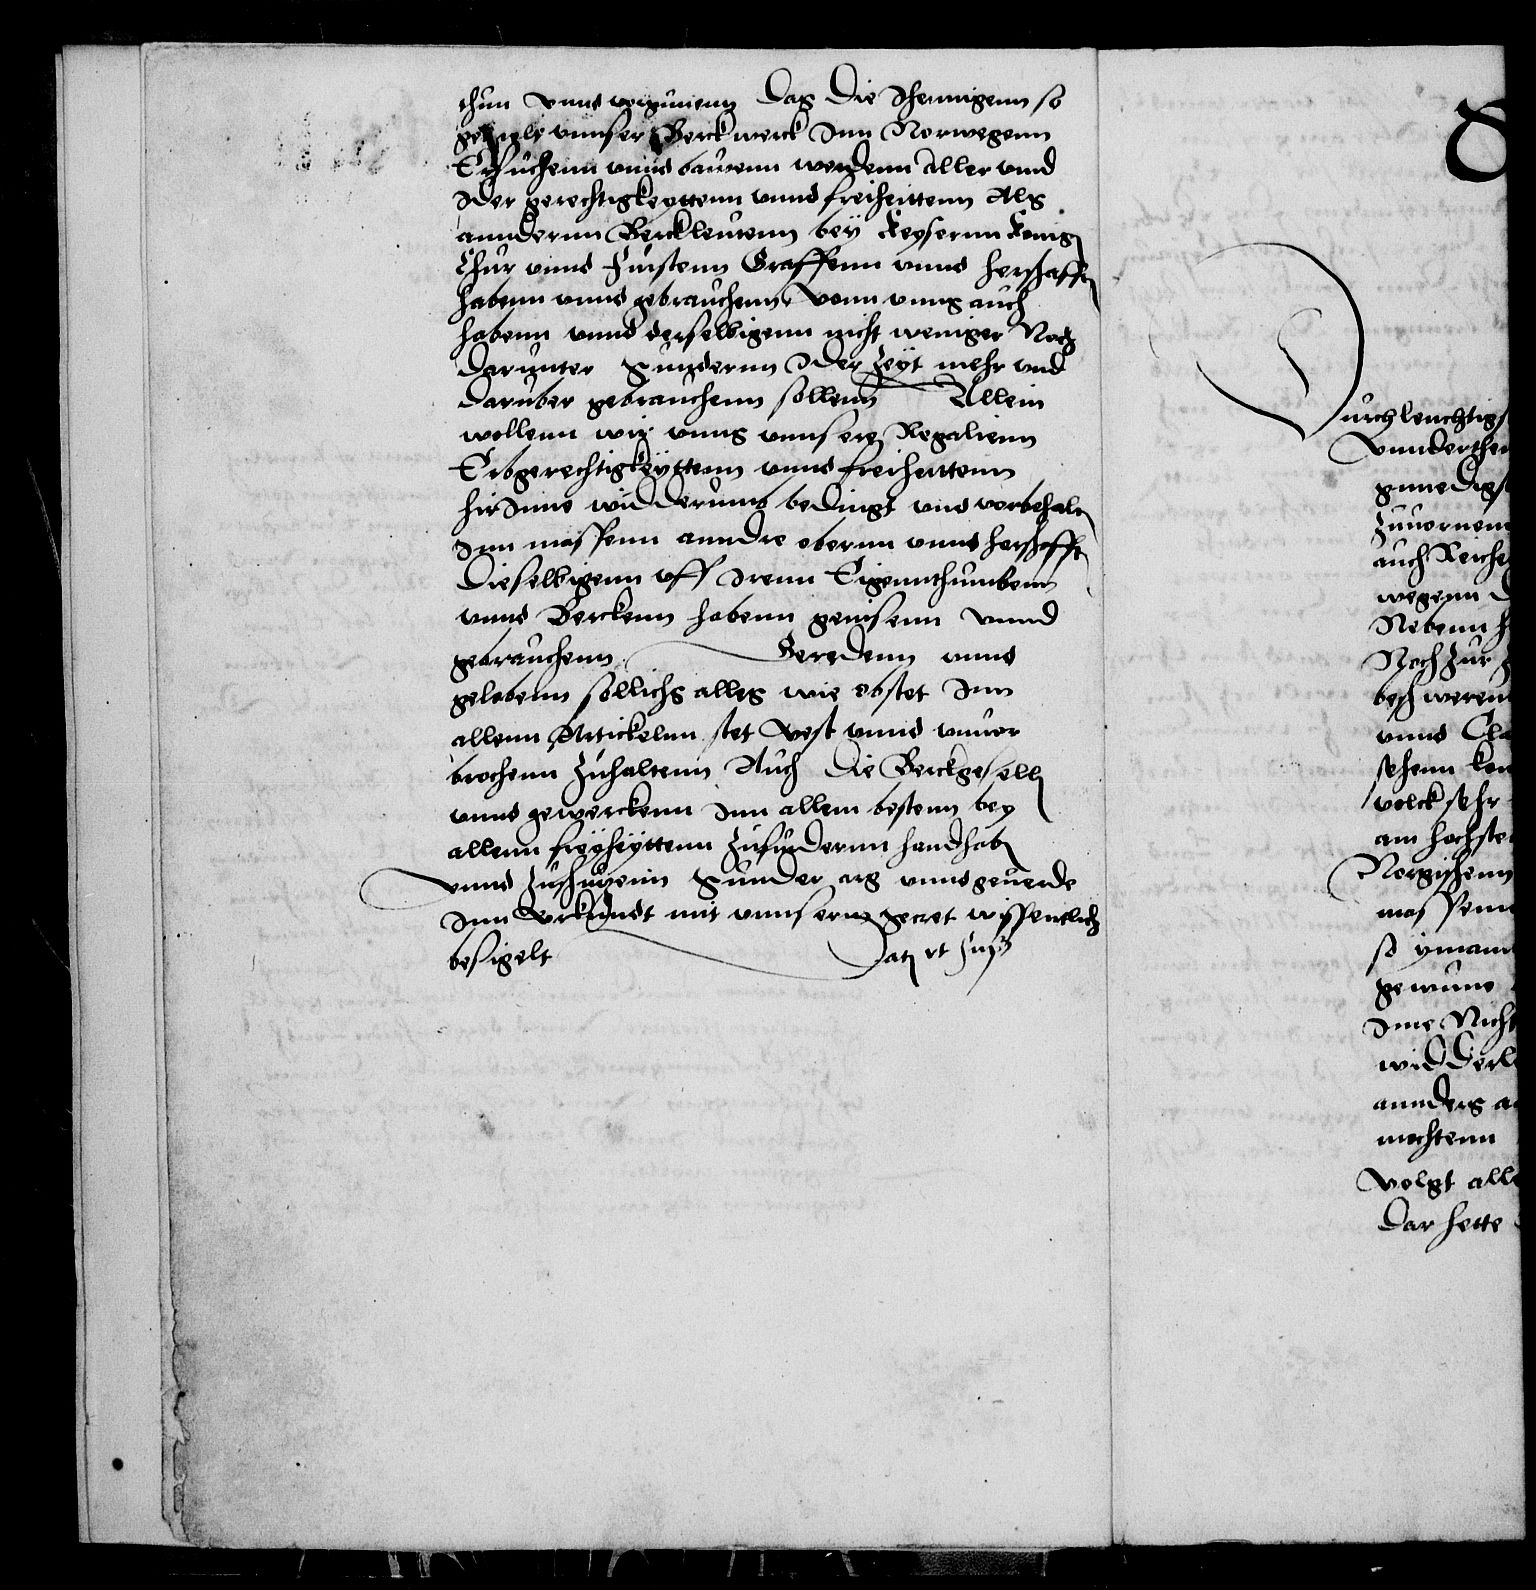 thun vnnd vorgunenn Das die Jhennigenn so
vnnser Berckwerck Inn Norwegenn
Ersuchenn vnnd bawenn werdenn Aller vnnd
Jder gerechtigkeyttenn vnnd freiheittenn Als
anndernn Berckleutenn bey Keysernn Konig
Chur vnnd Furstenn Graffenn vnnd herschafft
habenn vnnd gebrauchenn Vonn vnns auch
habenn vnnd derselbigenn nicht weniger Noch
darunter Sundernn Jder Zeyt mehr vnd
daruber gebrauchenn sollenn Allein
wollenn wir vnns vnnserer Regalienn
Erbgerechtigkeyttenn vnnd freiheittenn
hirJnne widderumb bedingt vnd vorbehalt
Inn massenn anndre obernn vnnd herschafft
Dieselbigenn vff Irenn Eigennthumbenn
vnnd Berckenn habenn genisenn vnnd
gebrauchenn Geredenn vnnd
gelobenn sollichs alles wie obstet Inn
allenn Artickelnn stet vest vnnd vnuor
brochenn Zuhaltenn Auch die Berckgeselln
vnnd gewerckenn Inn allem bestenn bey
allenn freyheyttenn Zufurdernn handhabn
vnnd Zuschutzenn Sunder arg vnnd geuerde
Inn Vrkundt mit vnnserm secret wissentlich
besigelt Dat vt sup
Durchleuchtigs
Vnnderthen
gnnedigs
Zuuornenn
auch Reiche
wegenn D
Nebenn h
Noch Zur
beschweren
vnnd Cla
sehenn kon
volck sehr
am hochste
Norgischenn
massenn
so ymand
gewune
Ime Nicht
widderl
annders a
mochtenn
Volgt alle
Dar hette